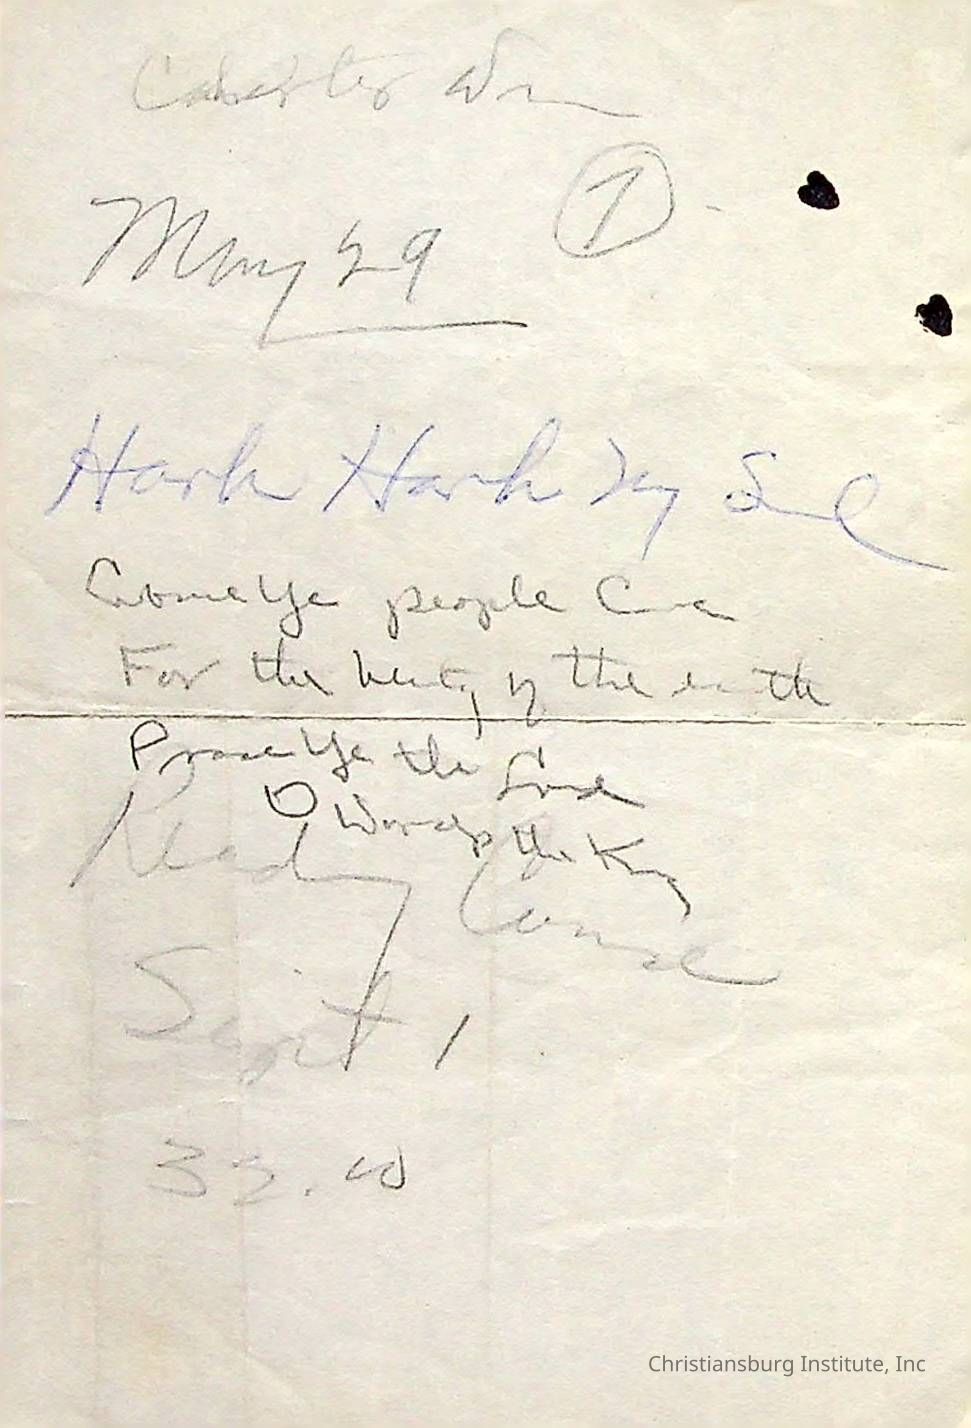 ①
May 29
Hark Hark My Soul
Come Ye people Come
For the beauty of the earth
Praise Ye the Lord
O Worship the King
Reading Course
Sept 1
33.00
Christiansburg Institute, Inc